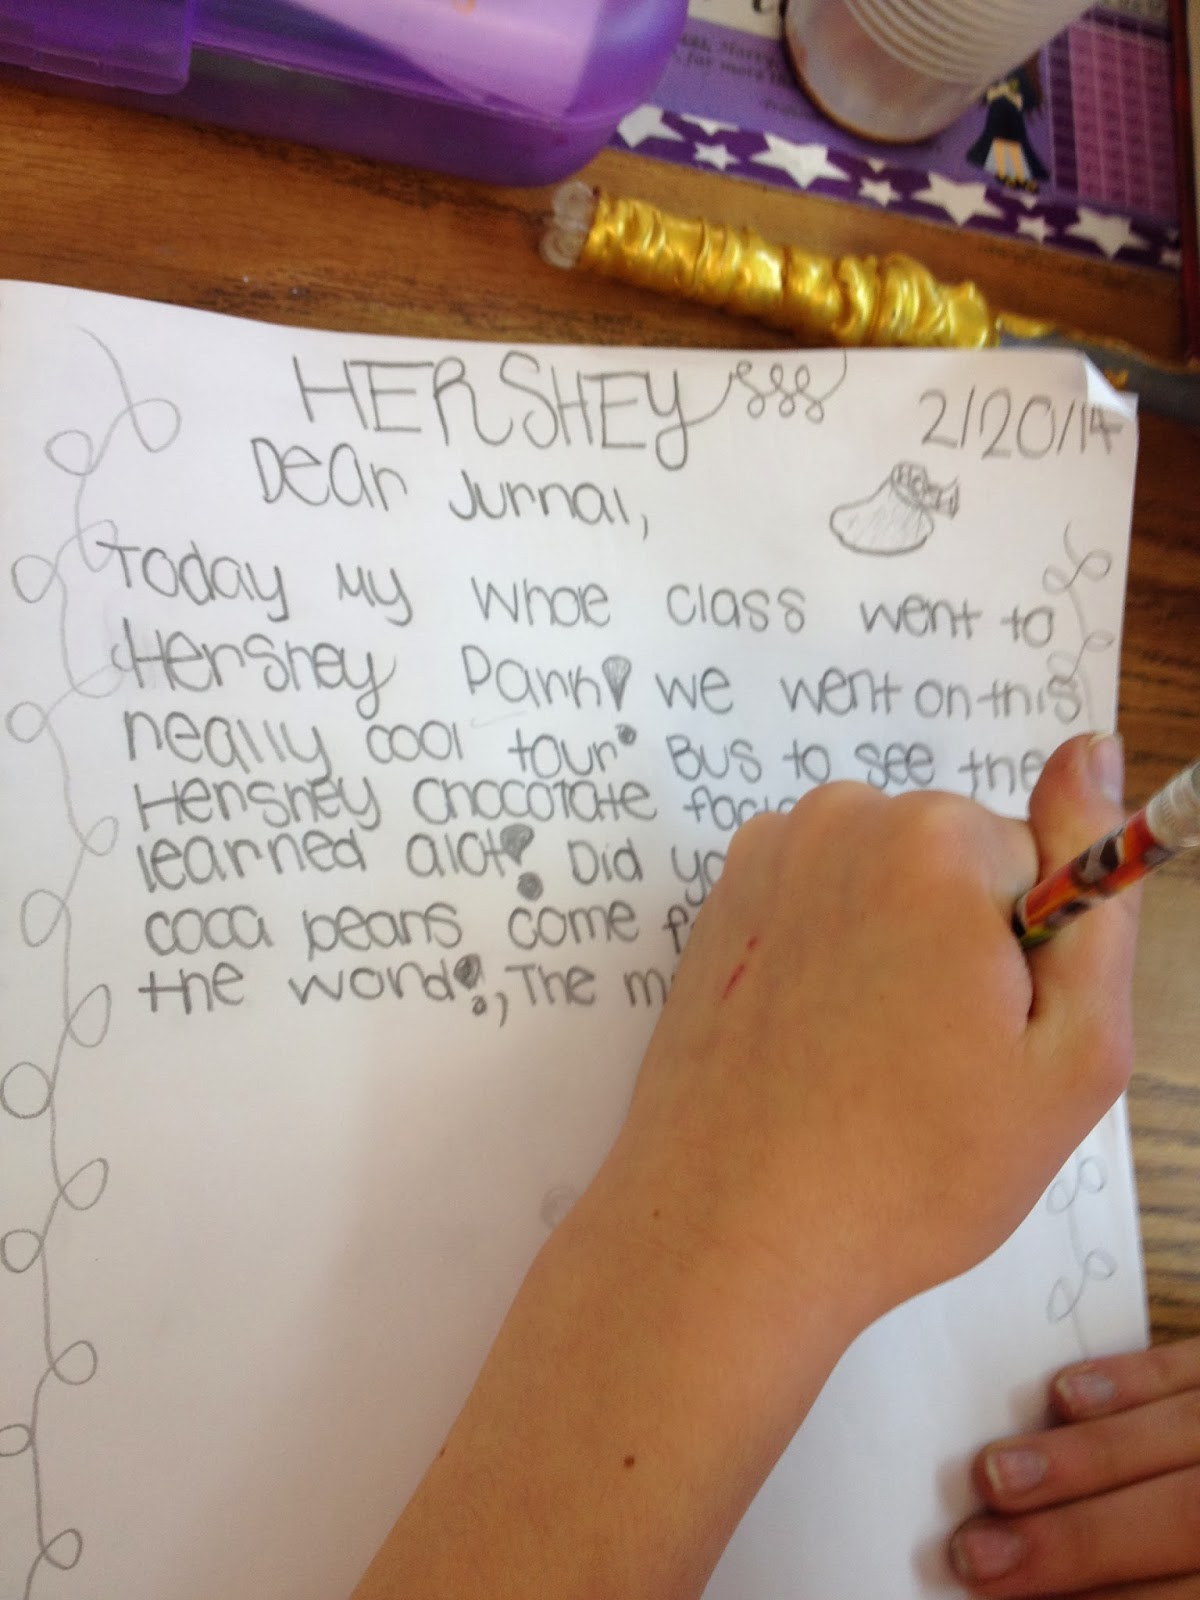 HERSHEY
2/20/14
Dear Jurnal,
Today My whoe class went to
Hershey Park! we went on this
really cool tour Bus to see the
Hershey chocolate
learned alot! Did
coca beans come
the world!, The